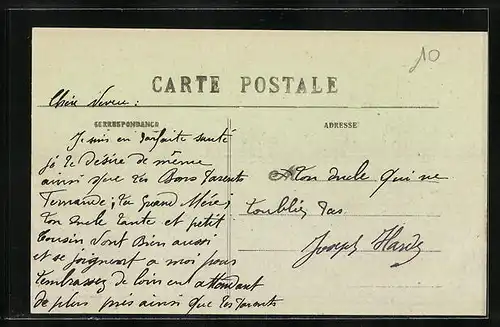 20
CARTE POSTALE
Chère Neveu :
CORRESPONDANCE
ADRESSE
Je suis en parfaite santé
jé te désire de même
ainsi que tes Bons Parents
Fernande, ta Grand Mère,
ton oncle tante et petit
Cousin vont Bien aussi
et se joignent a moi pour
t'embrasser de loin en attendant
de plus près ainsi que tes Parents
Ton oncle qui ne
t'oublie pas
Joseph